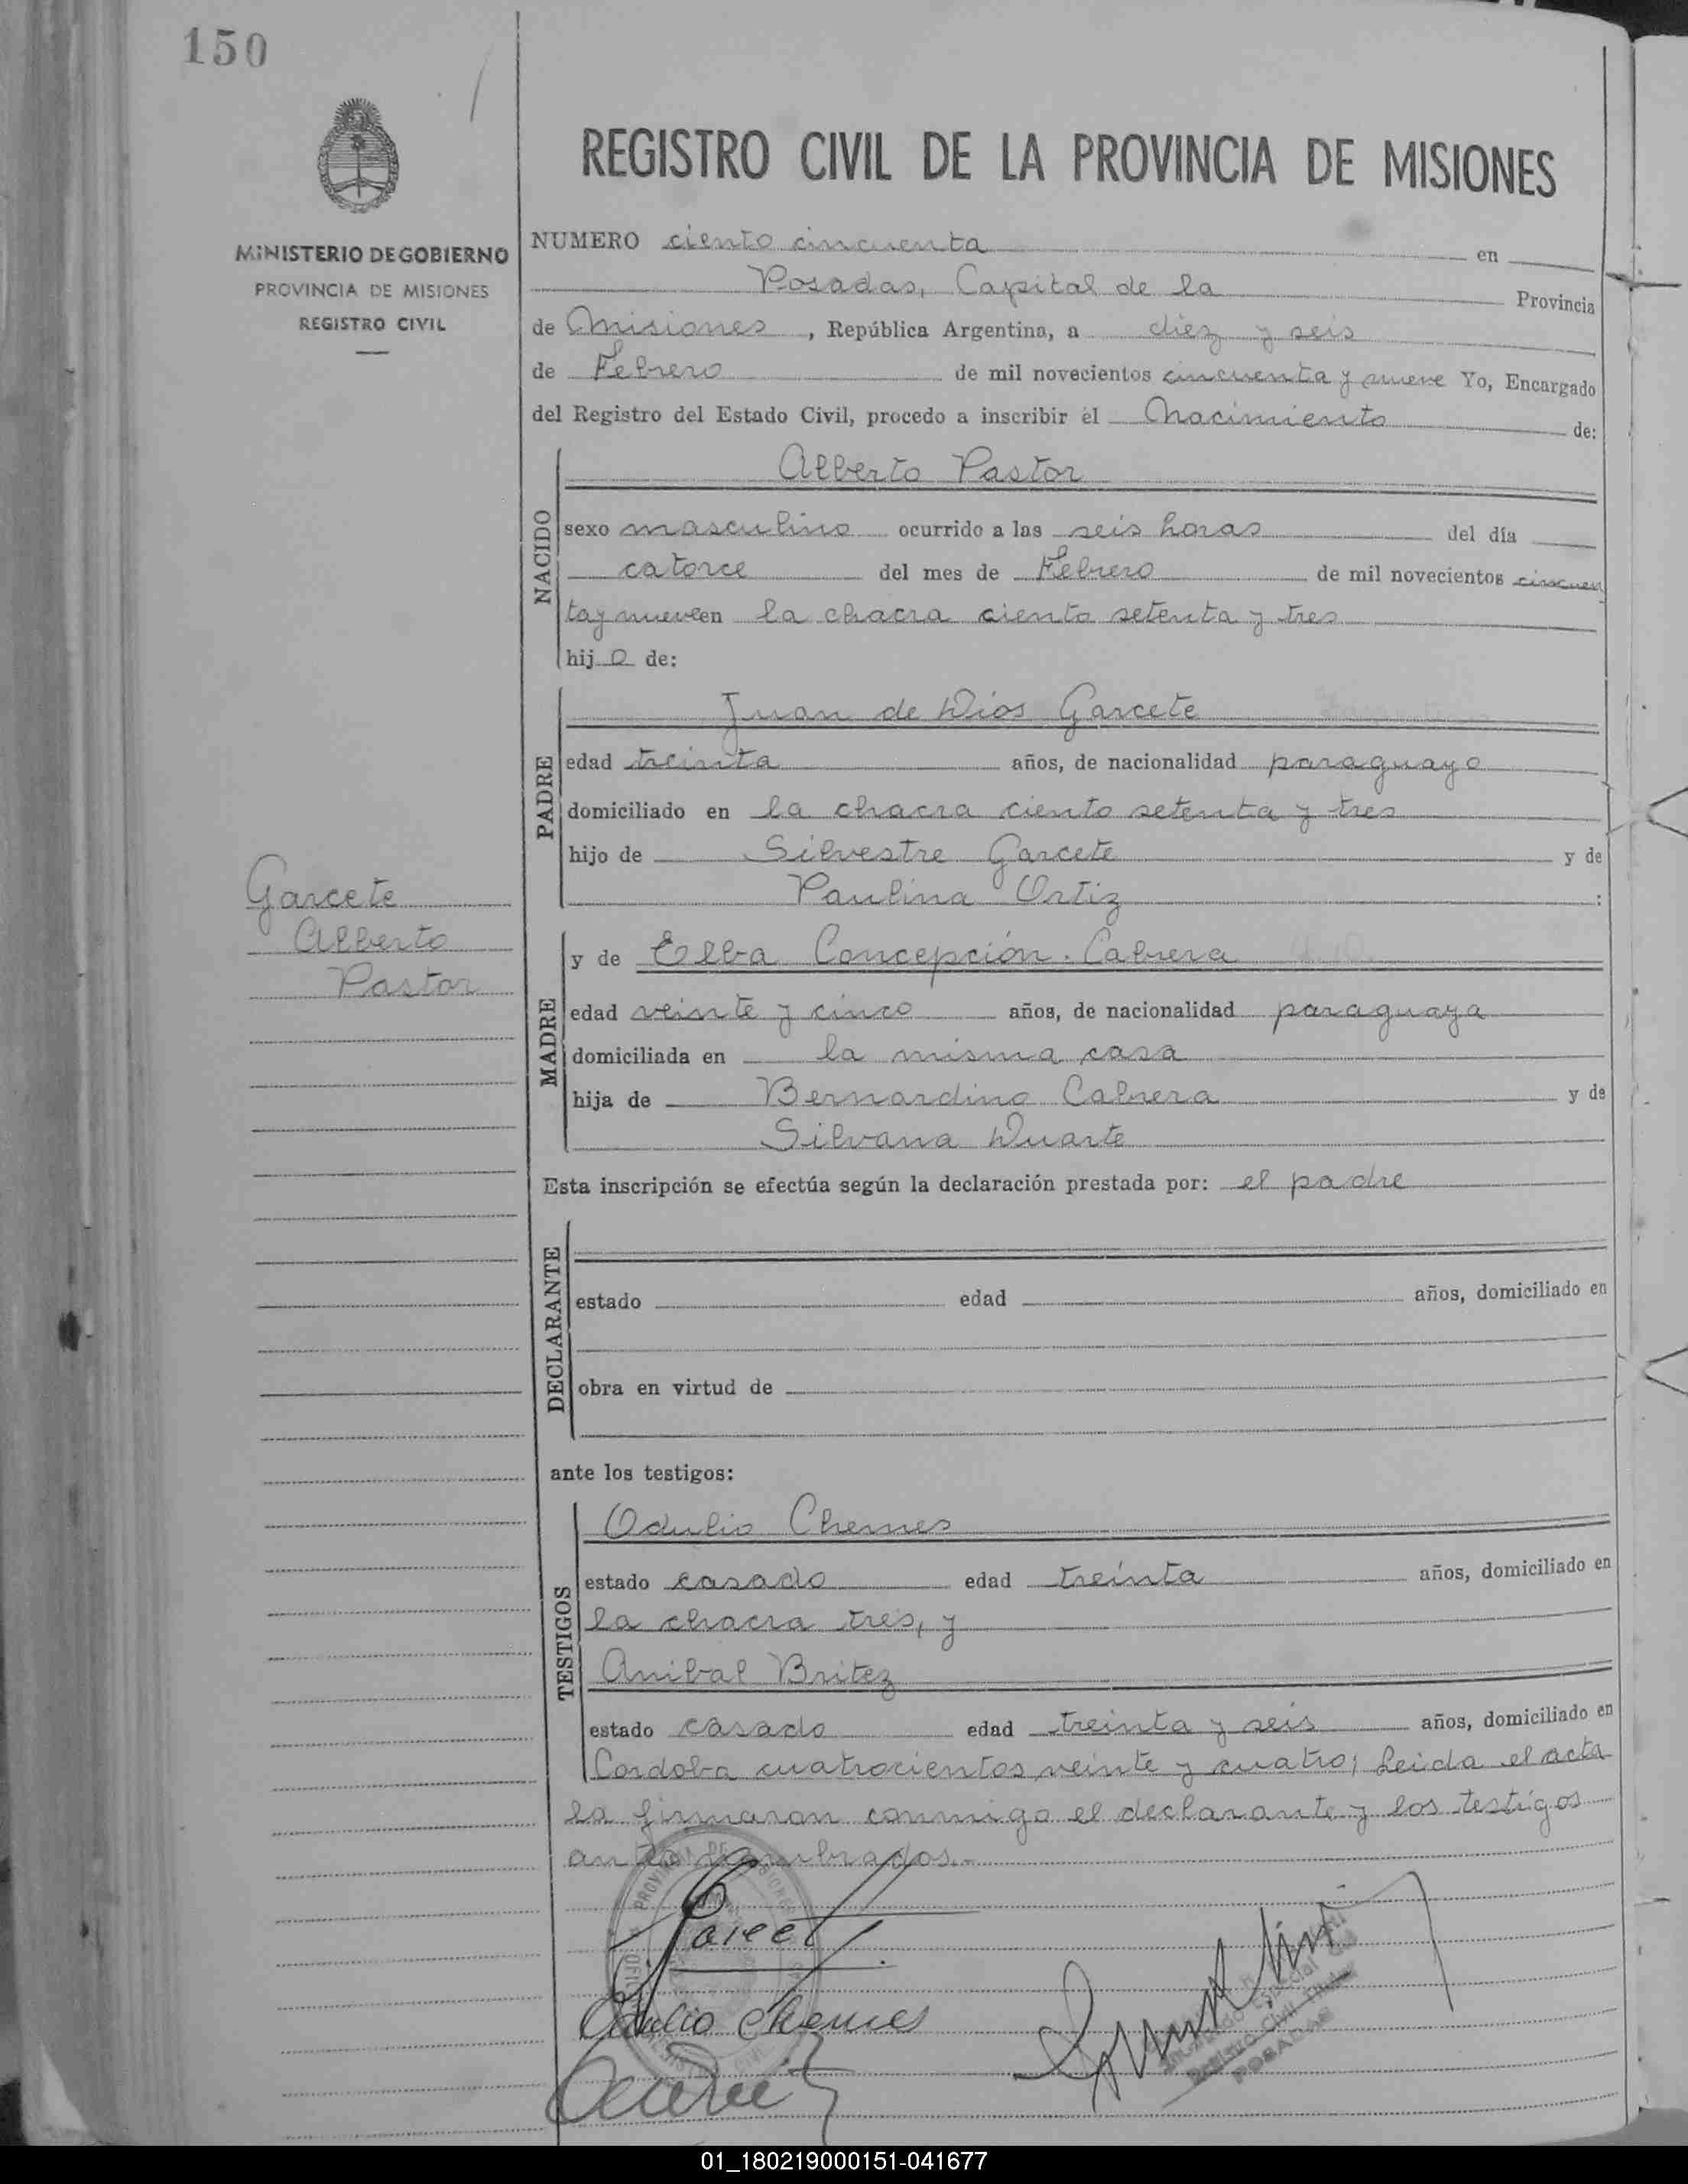 150
MINISTERIO DE GOBIERNO
PROVINCIA DE MISIONES
REGISTRO CIVIL
REGISTRO CIVIL DE LA PROVINCIA DE MISIONES
NUMERO ciento cincuenta en
Posadas, Capital de la Provincia
de Misiones, República Argentina, a diez y seis
de Febrero de mil novecientos cincuenta y nueve Yo, Encargado
del Registro del Estado Civil, procedo a inscribir el Nacimiento de:
NACIDO
Alberto Pastor
sexo masculino ocurrido a las seis horas del día
catorce del mes de Febrero de mil novecientos cincuen
ta y nueve en la chacra ciento setenta y tres
hijo de:
PADRE
Juan de Dios Garcete
edad treinta años, de nacionalidad paraguayo
domiciliado en la chacra ciento setenta y tres
hijo de Silvestre Garcete y de
Paulina Ortiz :
Garcete
Alberto
Pastor
MADRE
y de Elba Concepción Cabrera
edad veinte y cinco años, de nacionalidad paraguaya
domiciliada en la misma casa
hija de Bernardino Cabrera y de
Silvana Duarte
Esta inscripción se efectúa según la declaración prestada por: el padre
DECLARANTE
estado edad años, domiciliado en
obra en virtud de
ante los testigos:
TESTIGOS
Odulio Chemes
estado casado edad treinta años, domiciliado en
la chacra tres, y
Anibal Britez
estado casado edad treinta y seis años, domiciliado en
Cordoba cuatrocientos veinte y cuatro; Leida el acta
la firmaron conmigo el declarante y los testigos
antes nombrados.-
Odulio Chemes
Registro Civil
POSADAS
01_180219000151-041677